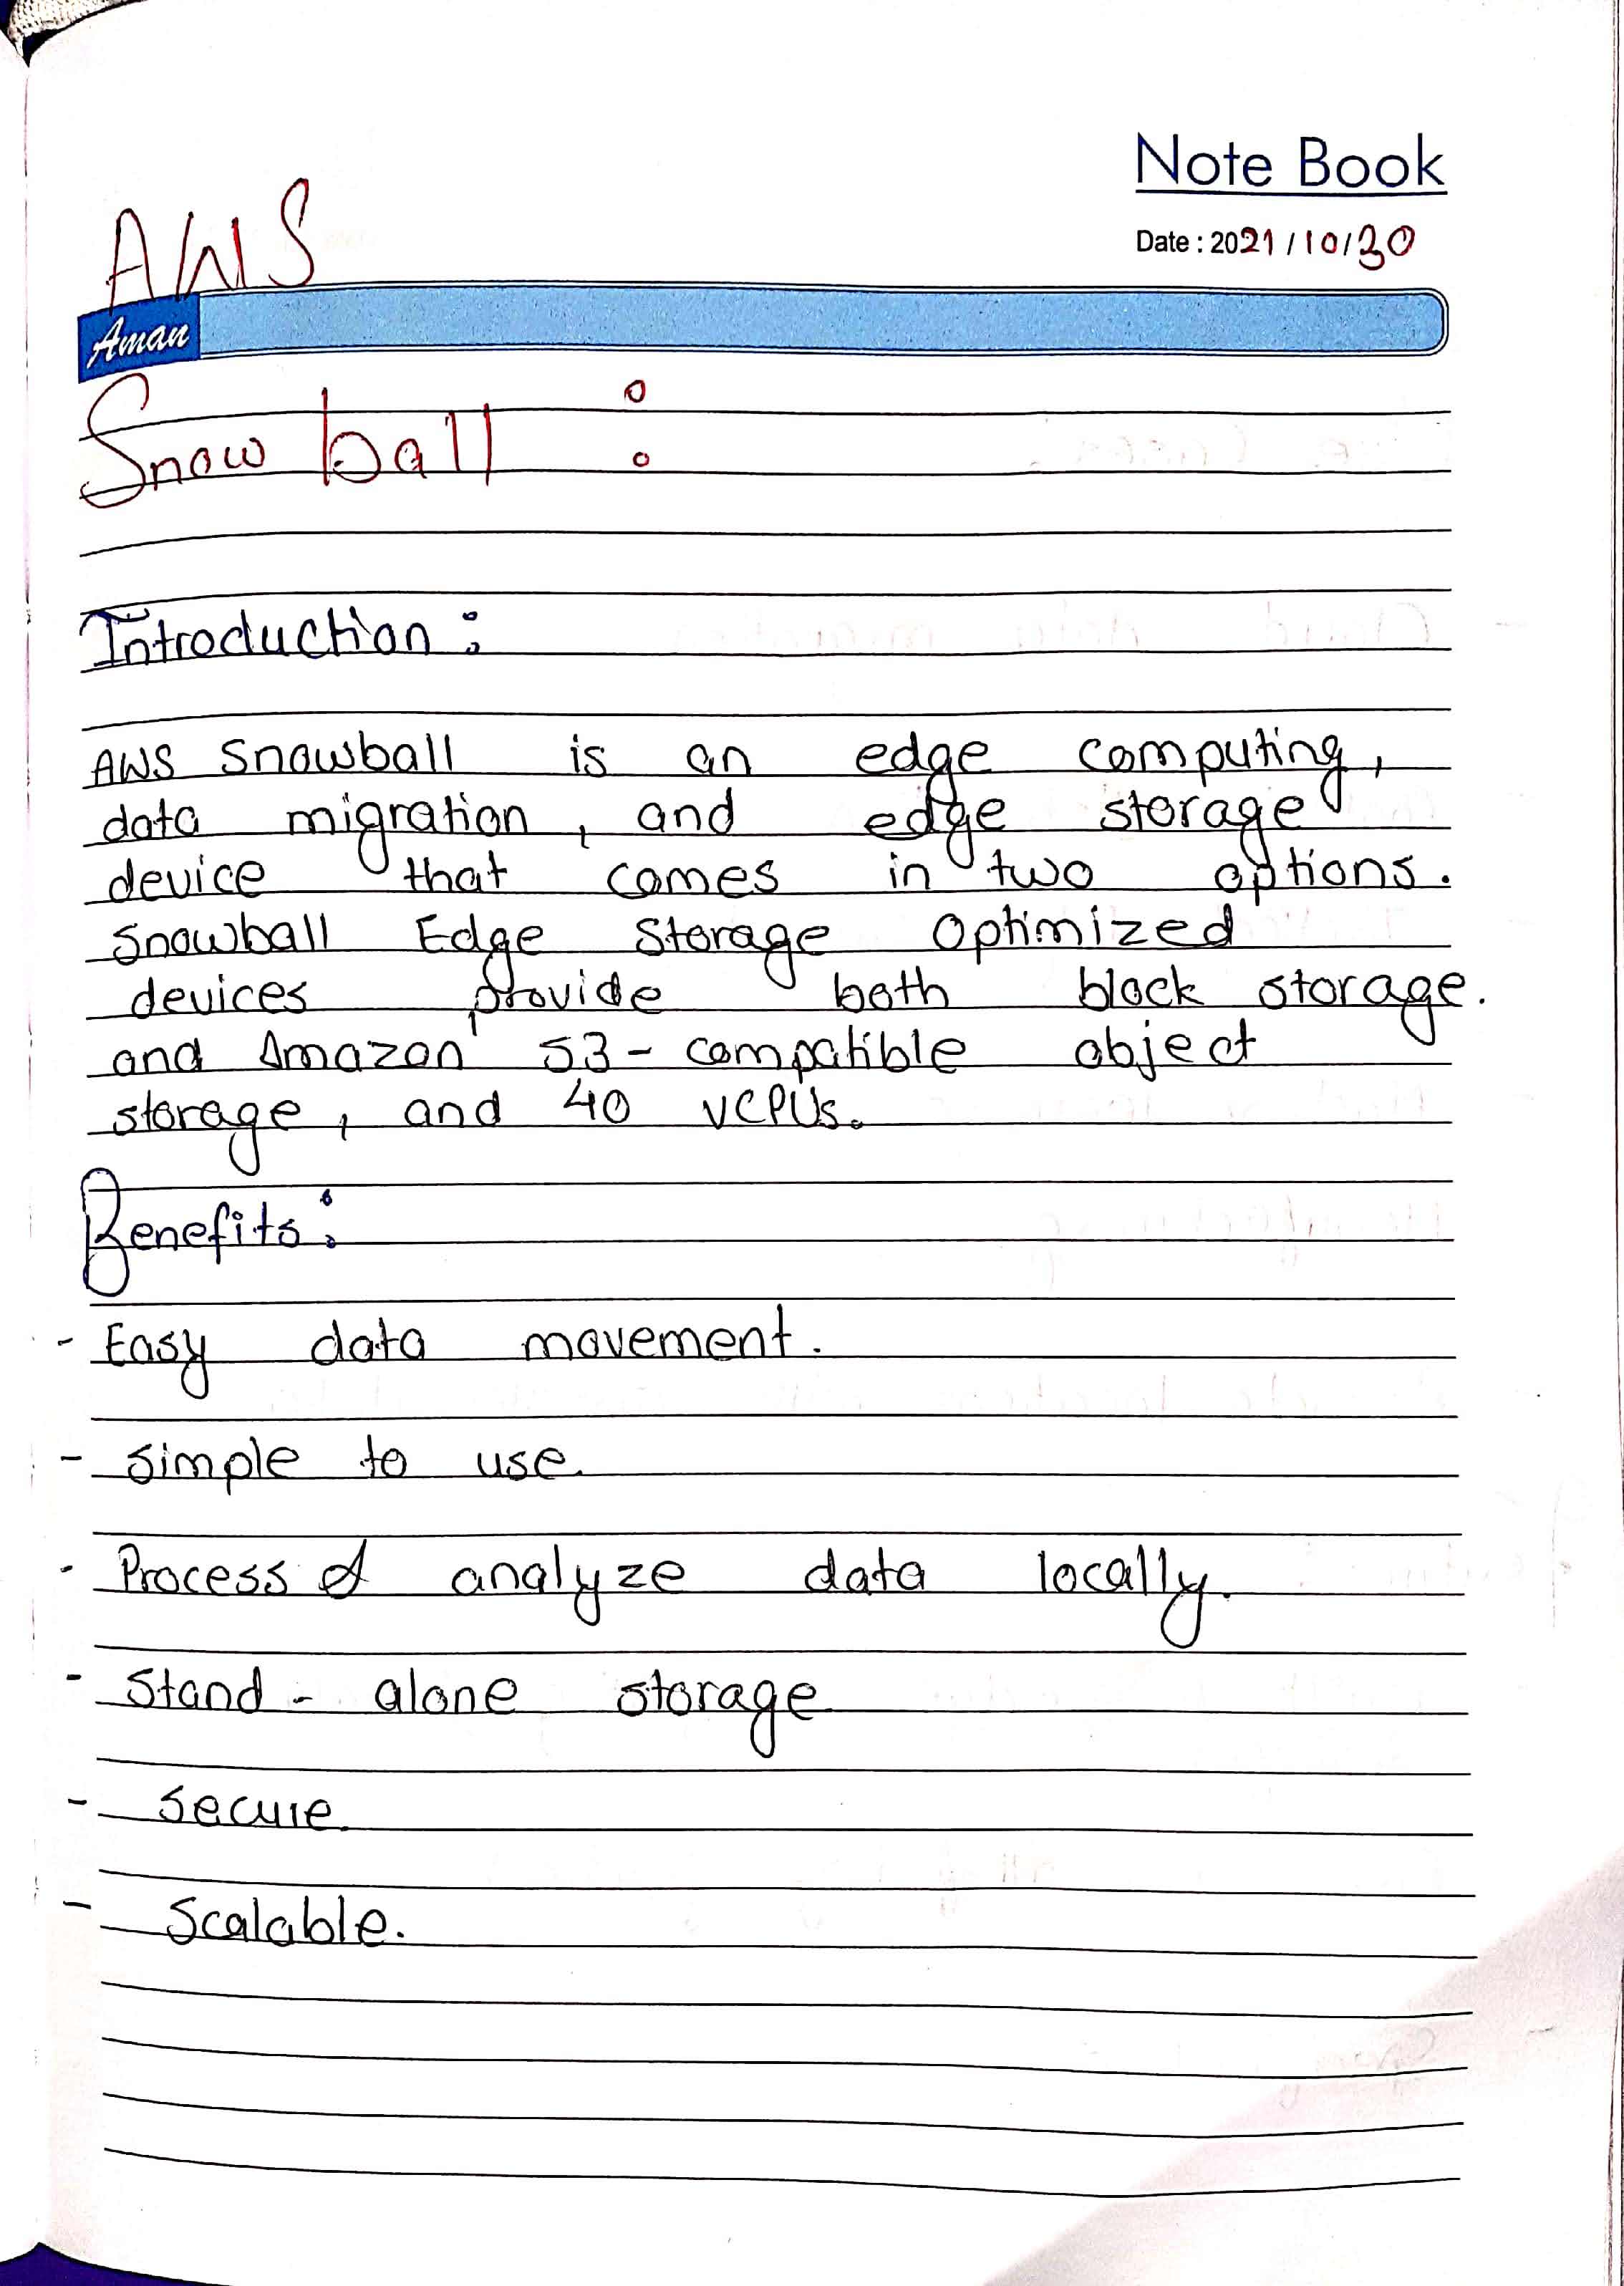 Note Book
Date : 2021/10/30
AWS
Aman
Snow ball :
Introduction :
AWS Snowball is an edge computing,
data migration, and edge storage
device that comes in two options.
Snowball Edge Storage Optimized
devices provide both block storage.
and Amazon S3 - compatible object
storage, and 40 vCPUs.
Benefits :
- Easy data movement.
- Simple to use.
- Process & analyze data locally.
- Stand - alone storage
- Secure.
- Scalable.